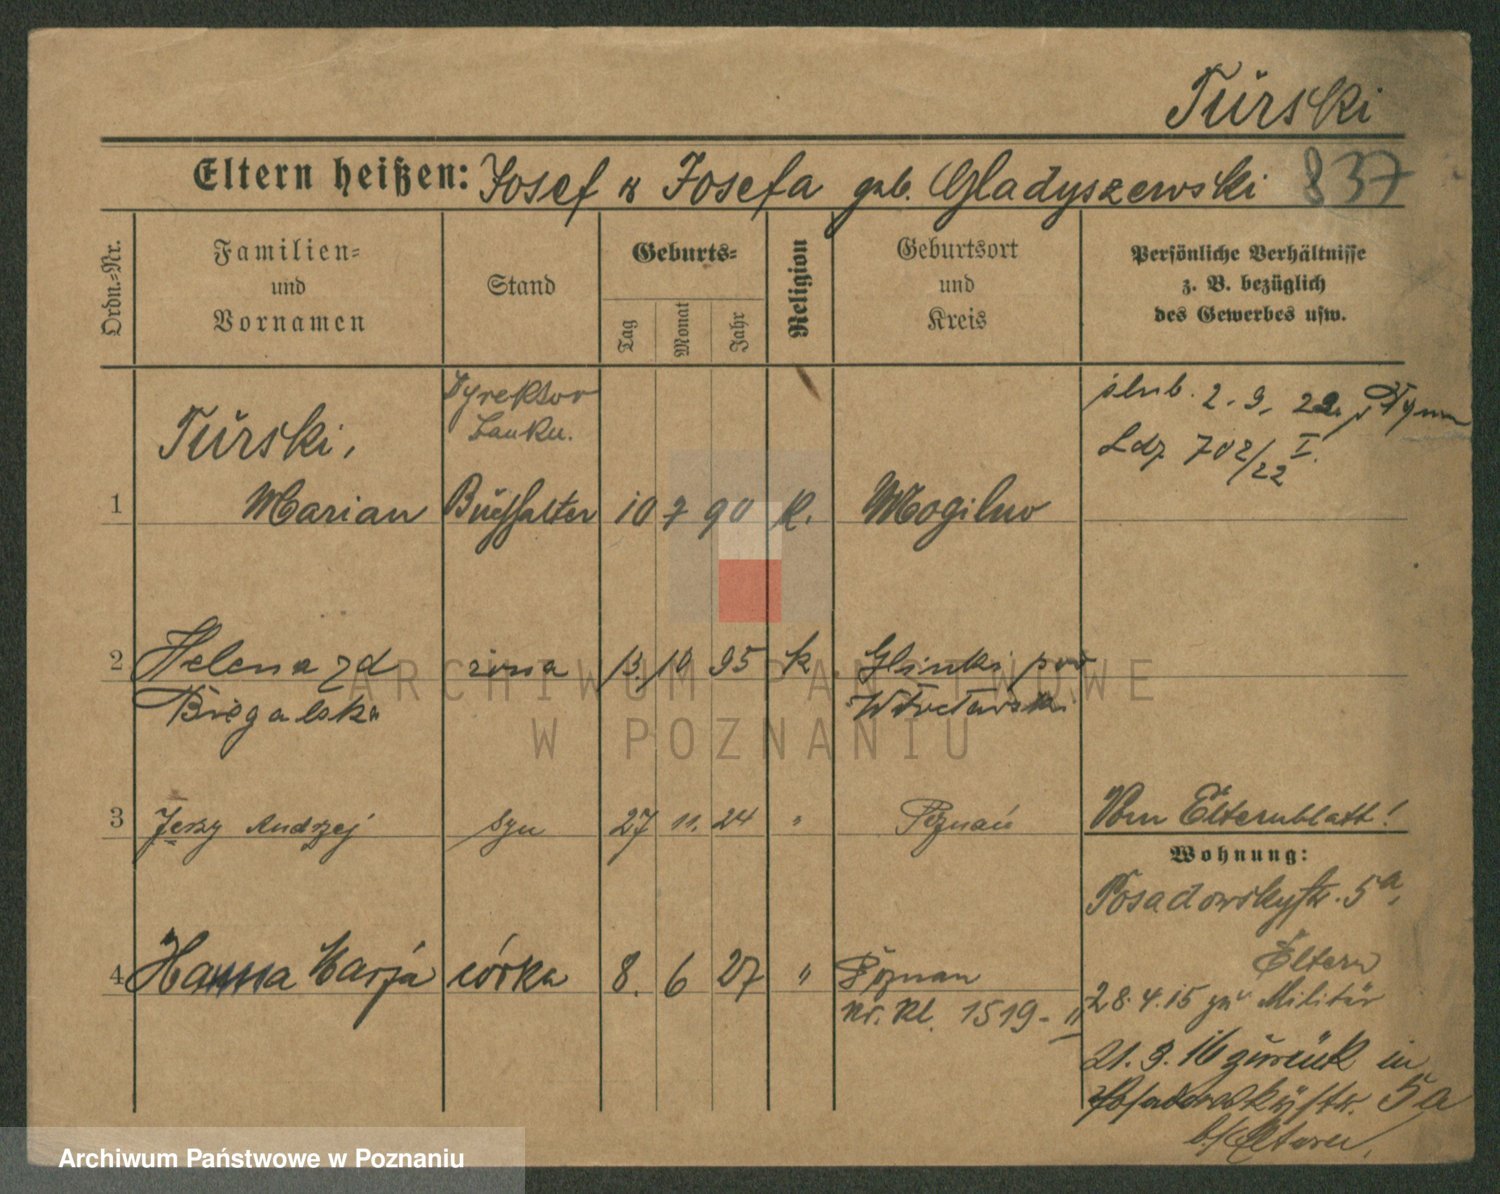 Türski
Eltern heißen: Josef u Josefa geb. Gladyszewski 837
Ordn.=Nr.
Familien=
und
Vornamen
Stand
Geburts=
Tag
Monat
Jahr
Religion
Geburtsort
und
Kreis
Persönliche Verhältnisse
z. B. bezüglich
des Gewerbes usw.
Dyrektor
banku.
ślub. 2. 9. 22
Ldz 702/22 I.
Türski,
1 Marian Buchhalter 10 7 90 K. Mogilno
2 Helena zd żona 13. 10 95 k Glinki pod
Biegalska
3 Jerzy Andrzej syn 27 11. 24 " Poznań
Vom Elternblatt!
Wohnung:
Posadowskystr. 5a,
Eltern
4 Hanna Marja córka 8. 6 27 " Poznan
nr. Kl. 1519 - II
28.4.15 zu Militär
21. 3. 16 zurück in
Posadowskystr. 5a
b/Eltern,
ARCHIWUM PAŃSTWOWE
W POZNANIU
Archiwum Państwowe w Poznaniu